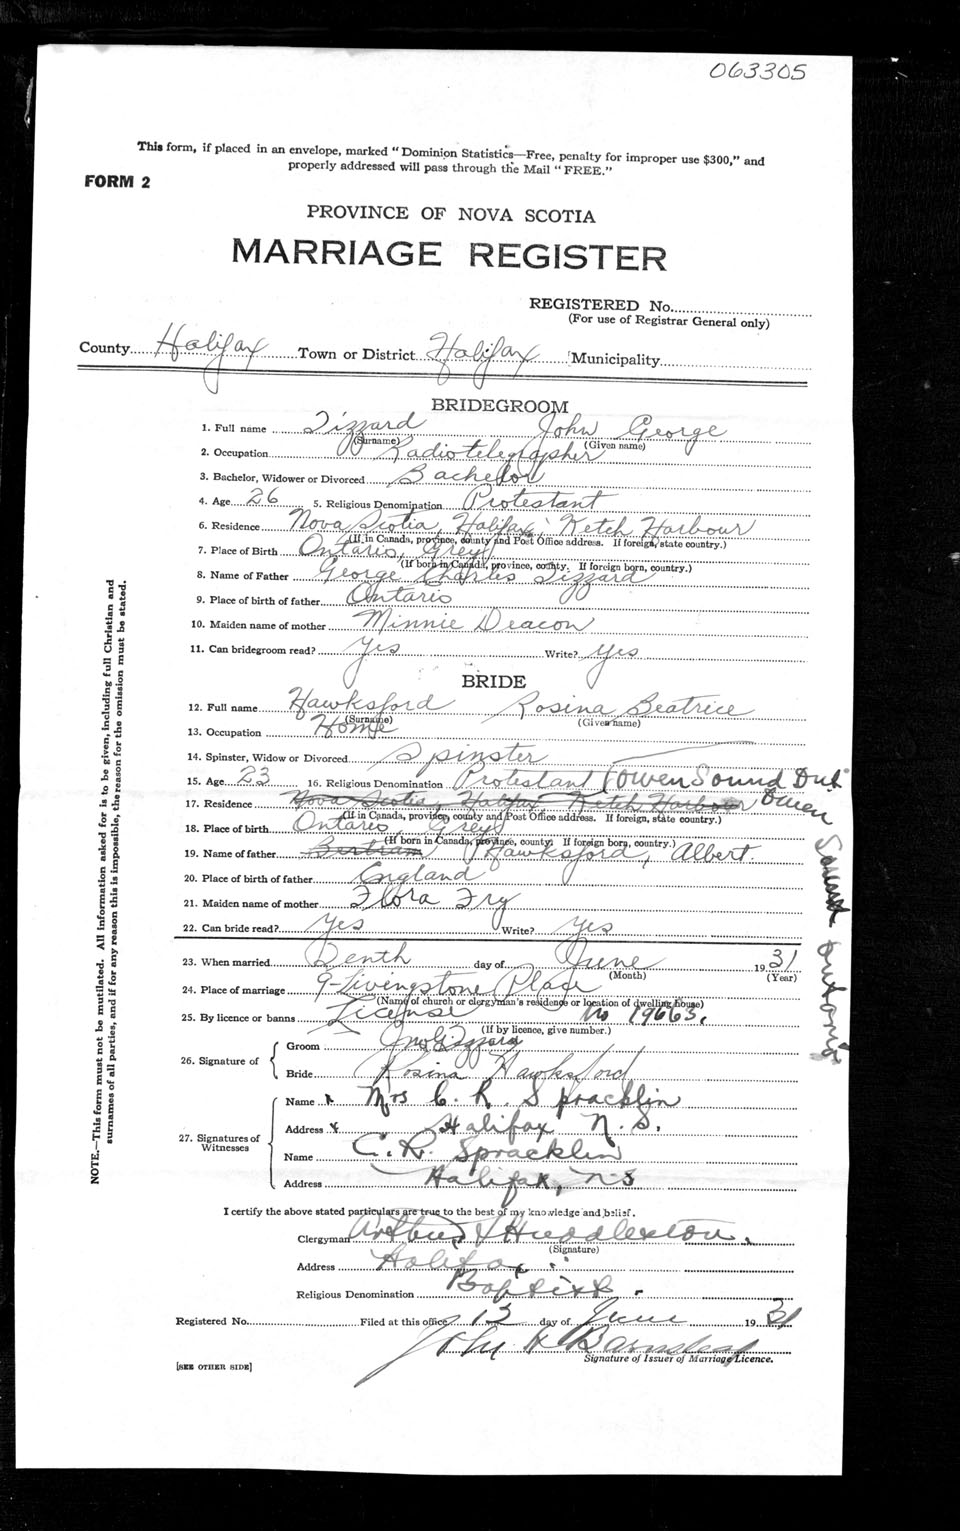 063305
This form, if placed in an envelope, marked "Dominion Statistics—Free, penalty for improper use $300," and
properly addressed will pass through the Mail "FREE."
FORM 2
PROVINCE OF NOVA SCOTIA
MARRIAGE REGISTER
REGISTERED No.
(For use of Registrar General only)
County Halifax Town or District Halifax Municipality
BRIDEGROOM
1. Full name Tizzard John George
(Surname) (Given name)
2. Occupation Radiotelegrapher
3. Bachelor, Widower or Divorced Bachelor
4. Age 26 5. Religious Denomination Protestant
6. Residence Nova Scotia, Halifax, Ketch Harbour
(If in Canada, province, county and Post Office address. If foreign, state country.)
7. Place of Birth Ontario, Grey
(If born in Canada, province, county. If foreign born, country.)
8. Name of Father George Charles Tizzard
9. Place of birth of father Ontario
10. Maiden name of mother Minnie Deacon
11. Can bridegroom read? Yes Write? Yes
BRIDE
12. Full name Hawksford Rosina Beatrice
(Surname) (Given name)
13. Occupation Home
14. Spinster, Widow or Divorced Spinster
15. Age 23 16. Religious Denomination Protestant (Owen Sound Ont
17. Residence Nova Scotia, Halifax Ketch Harbour Owen Sound Ontario
(If in Canada, province, county and Post Office address. If foreign, state country.)
18. Place of birth Ontario, Grey
(If born in Canada, province, county. If foreign born, country.)
19. Name of father Bertram Hawksford, Albert.
20. Place of birth of father England
21. Maiden name of mother Flora Fry
22. Can bride read? Yes Write? Yes
23. When married Tenth day of June 1931
(Month) (Year)
24. Place of marriage 9-Livingstone Place
(Name of church or clergyman's residence or location of dwelling house)
25. By licence or banns License No 19663.
(If by licence, give number.)
26. Signature of
Groom Jno G Tizzard
Bride Rosina Hawksford
27. Signatures of Witnesses
Name Mrs C. R. Spracklin
Address Halifax N.S.
Name C. R. Spracklin
Address Halifax, N S
I certify the above stated particulars are true to the best of my knowledge and belief.
Clergyman Arthur Huddleston.
(Signature)
Address Halifax
Religious Denomination Baptist
Registered No. Filed at this office 12 day of June 1931
John Barnstead
Signature of Issuer of Marriage Licence.
[SEE OTHER SIDE]
NOTE.—This form must not be mutilated. All information asked for is to be given, including full Christian and
surnames of all parties, and if for any reason this is impossible, the reason for the omission must be stated.